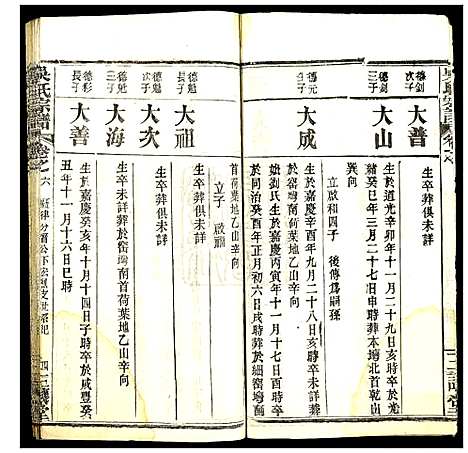 德釗
次子
大普
生卒葬俱未詳
德釗
三子
大山
生於道光辛卯年十一月二十九日亥時卒於光
緒癸巳年三月二十七日申時葬本塆北首乾山
巽向
德元
子
大成
立啟和四子 後傳爲嗣孫
生於嘉慶辛酉年九月二十八日亥時卒未詳葬
於窑塆南首荷葉地乙山辛向
娶劉氏生於嘉慶丙寅年十一月十七日酉時
歿於同治癸酉年正月初六日戌時葬於細窑塆面
首荷葉地乙山辛向
立子 啟福
德魁
長子
大祖
生卒葬俱未詳
德魁
次子
大次
生卒葬俱未詳
德魁
三子
大海
生卒未詳葬於窑塆南首荷葉地乙山辛向
德彩
長子
大善
生於嘉慶癸亥年十月十四日子時卒於咸豐癸
丑年十一月十六日巳時
吳氏宗譜
卷之六